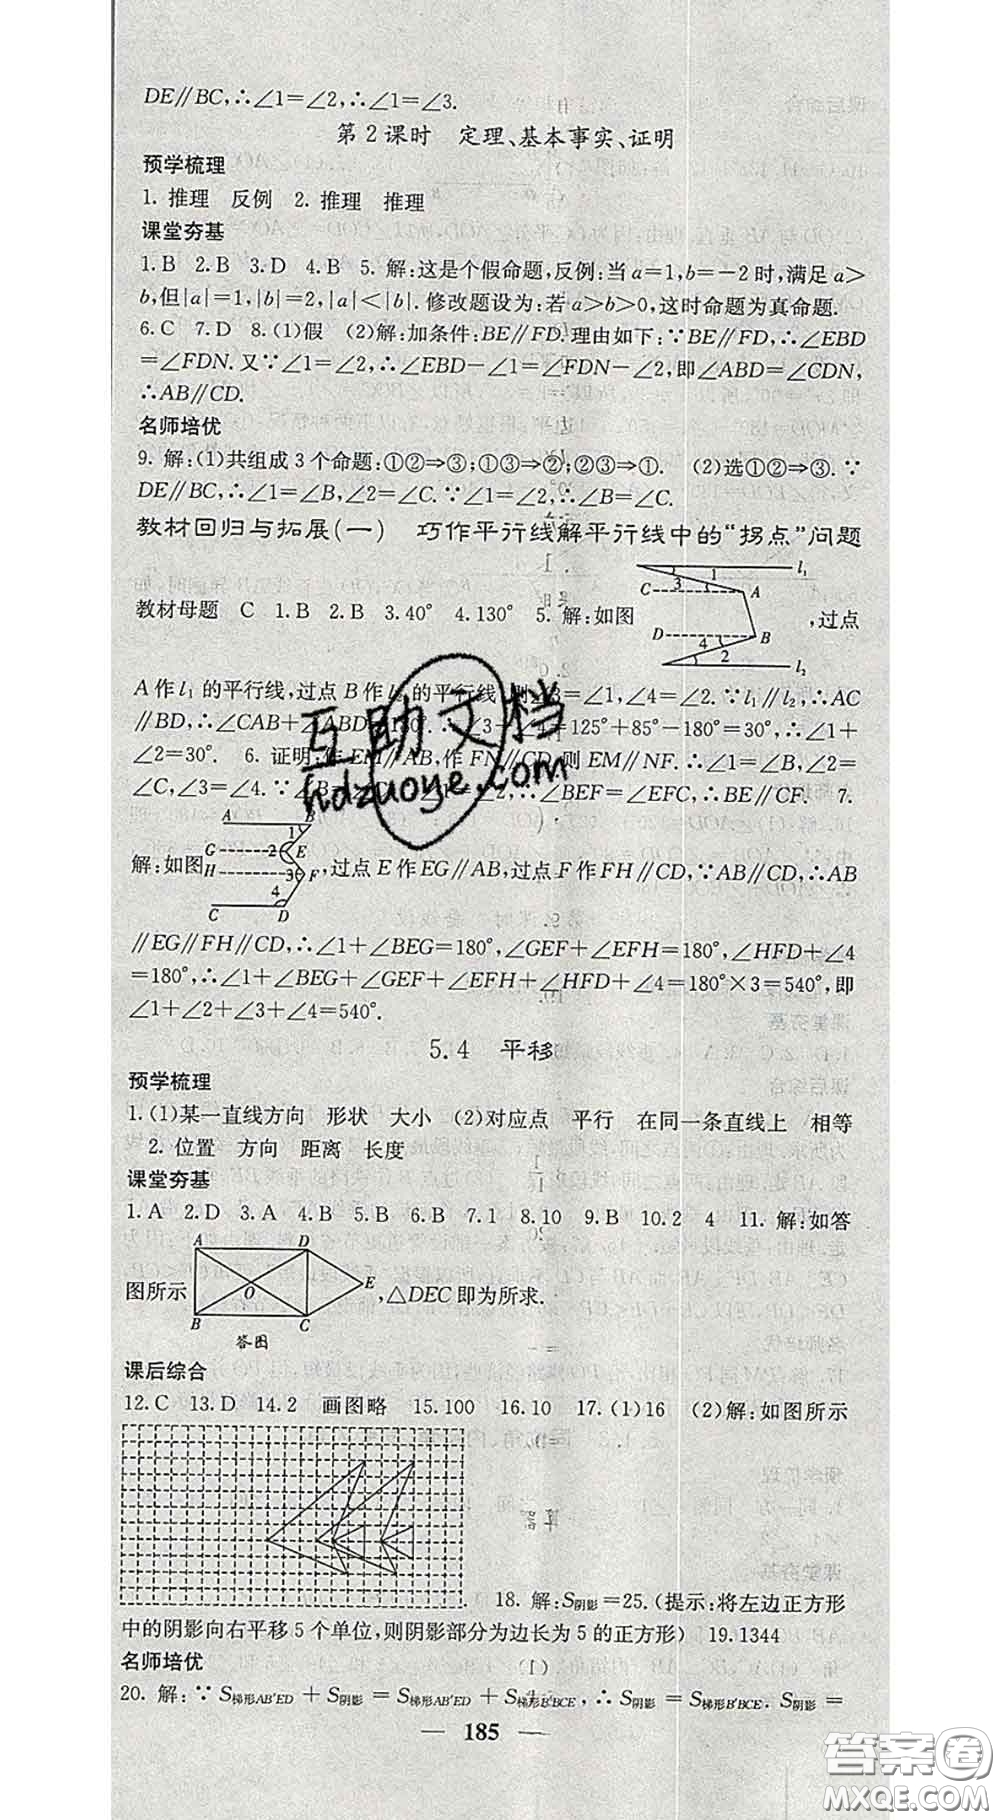 DE∥BC,∴∠1=∠2,∴∠1=∠3.
第2课时 定理、基本事实、证明
预学梳理
1. 推理 反例 2. 推理 推理
课堂夯基
1.B 2.B 3.D 4.B 5. 解:这是个假命题,反例:当a=1,b=-2时,满足a>
b,但|a|=1,|b|=2,|a|<|b|.修改题设为:若a>b>0,这时命题为真命题.
6.C 7.D 8.(1)假 (2)解:加条件:BE∥FD.理由如下:∵BE∥FD,∴∠EBD
=∠FDN.又∵∠1=∠2,∴∠EBD-∠1=∠FDN-∠2,即∠ABD=∠CDN,
∴AB∥CD.
名师培优
9. 解:(1)共组成3个命题:①②⇒③;①③⇒②;②③⇒①. (2)选①②⇒③.∵
DE∥BC,∴∠1=∠B,∠2=∠C.∵∠1=∠2,∴∠B=∠C.
教材回归与拓展(一) 巧作平行线解平行线中的“拐点”问题
l₁
C 3 1 A
教材母题 C 1.B 2.B 3.40° 4.130° 5. 解:如图 ,过点
D 4 B
2 l₂
A作l₁的平行线,过点B作l₂的平行线,则∠3=∠1,∠4=∠2.∵l₁∥l₂,∴AC
∥BD,∴∠CAB+∠ABD=180°.∴∠3+∠4=125°+85°-180°=30°,∴∠1+
∠2=30°. 6. 证明:作EM∥AB,作FN∥CD,则EM∥NF.∴∠1=∠B,∠2=
∠C,∠3=∠4.∵∠B=∠C,∴∠1=∠2,∴∠BEF=∠EFC,∴BE∥CF. 7.
互助文档
hdzuoye.com
A B
1
G 2 E
解:如图 ,过点E作EG∥AB,过点F作FH∥CD,∵AB∥CD,∴AB
H 3 F
4
C D
∥EG∥FH∥CD,∴∠1+∠BEG=180°,∠GEF+∠EFH=180°,∠HFD+∠4
=180°,∴∠1+∠BEG+∠GEF+∠EFH+∠HFD+∠4=180°×3=540°,即
∠1+∠2+∠3+∠4=540°.
5.4 平移
预学梳理
1.(1)某一直线方向 形状 大小 (2)对应点 平行 在同一条直线上 相等
2. 位置 方向 距离 长度
课堂夯基
1.A 2.D 3.A 4.B 5.B 6.B 7.1 8.10 9.B 10.2 4 11. 解:如答
A D
图所示 O E ,△DEC即为所求.
B C
答图
课后综合
12.C 13.D 14.2 画图略 15.100 16.10 17.(1)16 (2)解:如图所示
. 18. 解:S阴影=25.(提示:将左边正方形
中的阴影向右平移5个单位,则阴影部分为边长为5的正方形) 19.1344
名师培优
20. 解:∵S梯形AB′ED+S阴影=S梯形AB′ED+S梯形B′BCE,∴S阴影=S梯形B′BCE. S阴影=
— 185 —
答案圈
MXQE.COM